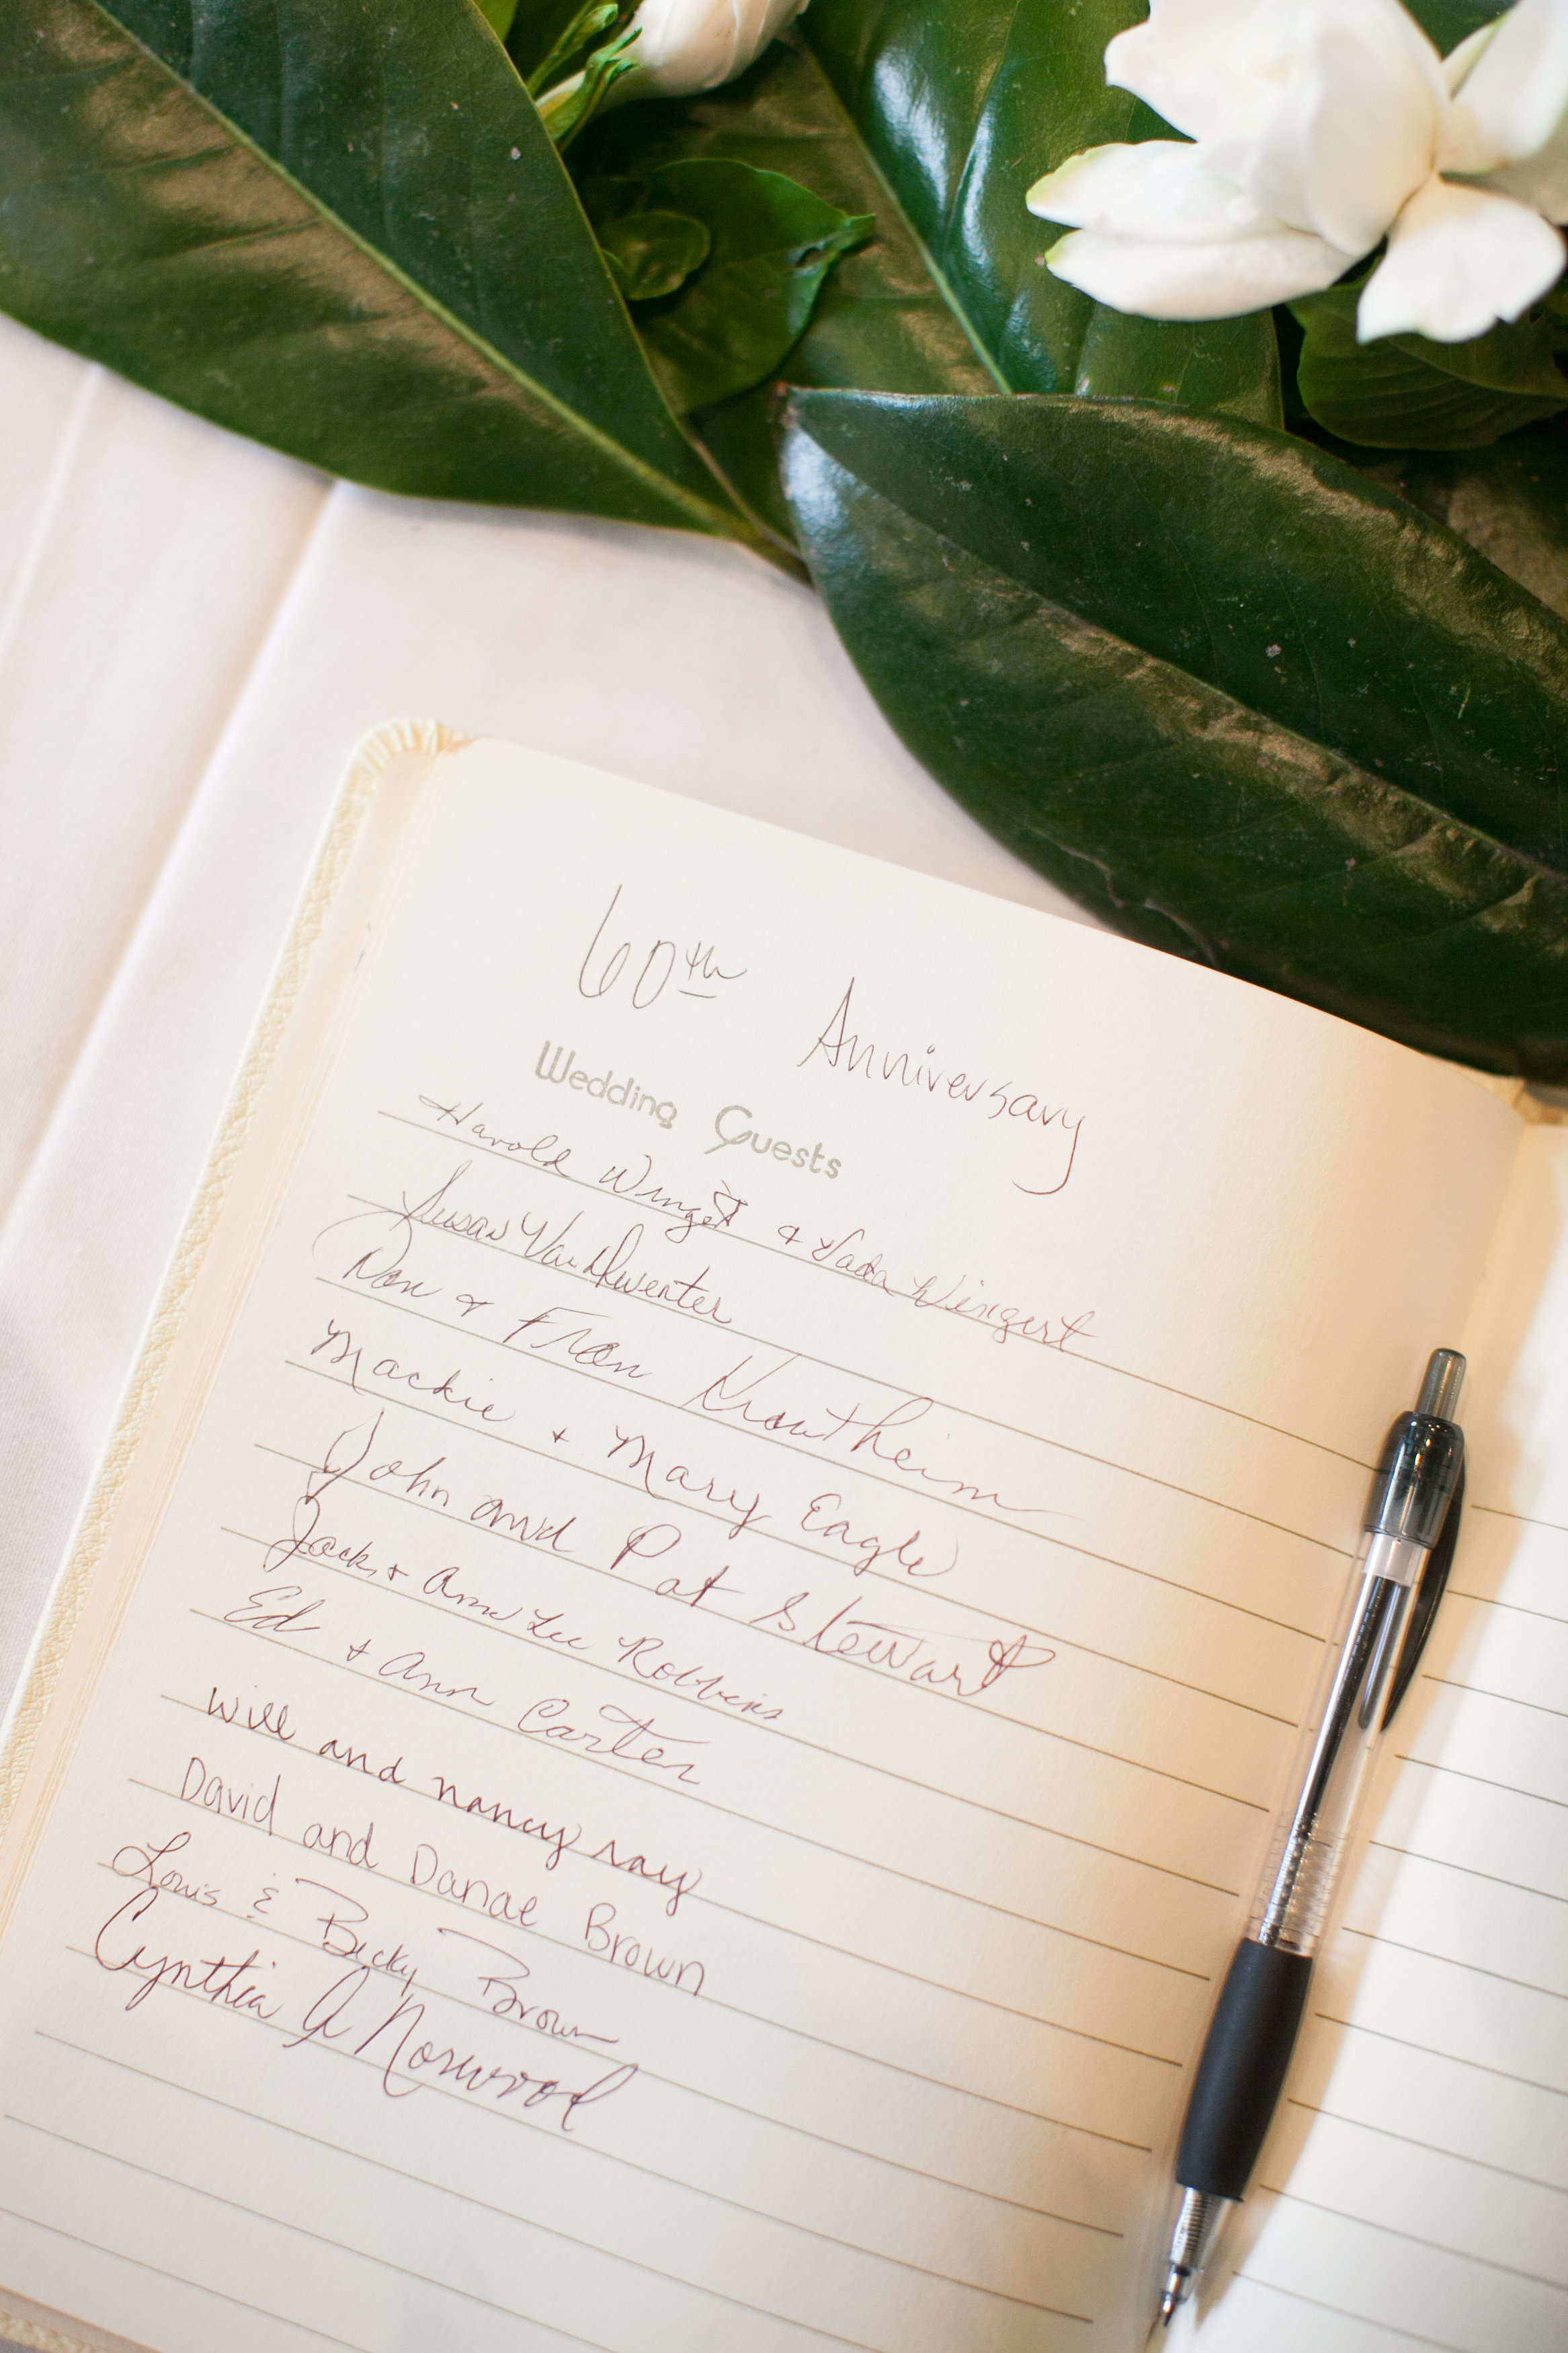 60th Anniversary
Wedding Guests
Harold Wingert & Vada Wingert
Susan VanDeventer
Don & Fran Krautheim
Mackie + Mary Eagle
John and Pat Stewart
Jack + Ann Lee Robbins
Ed & Ann Carter
Will and nancy ray
David and Danae Brown
Louis & Becky Brown
Cynthia A Norwood